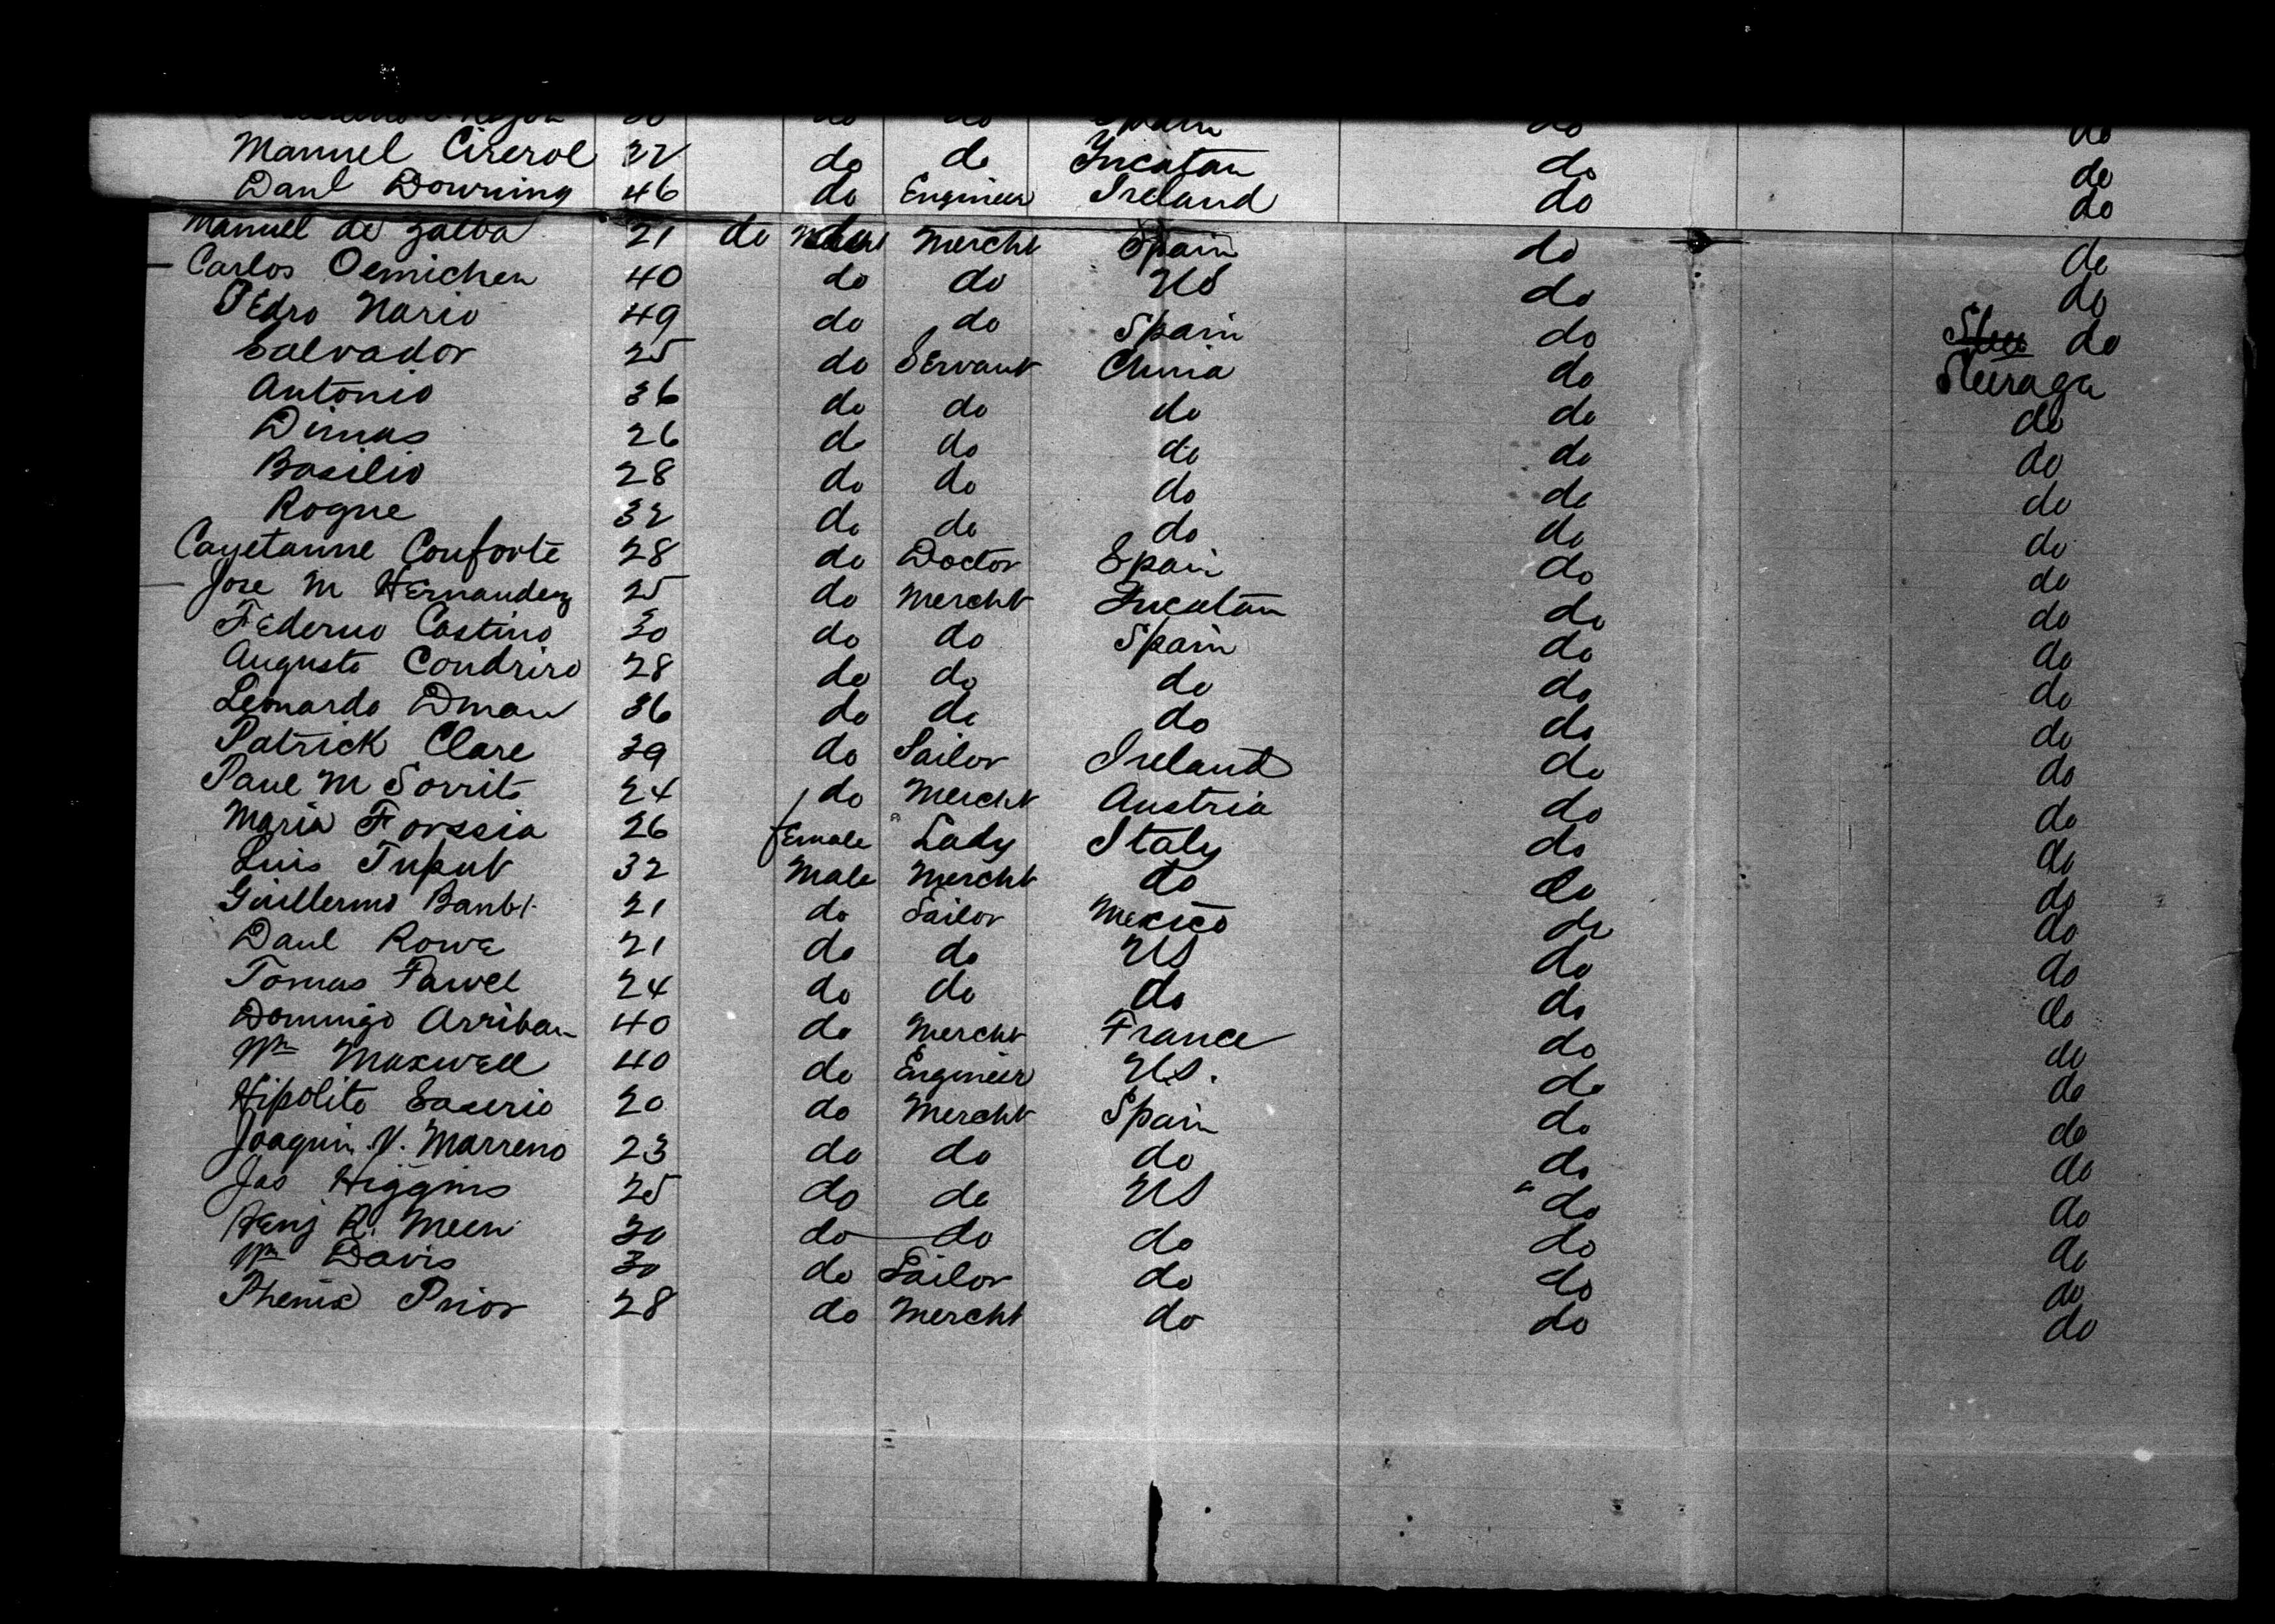 do do Spain do do
Manuel Cirerol 22 do do Yucatan do do
Danl Downing 46 do Engineer Ireland do do
Manuel de Zalba 21 do Mercht Spain do do
Carlos Oemichen 40 do do US do do
Pedro Nario 49 do do Spain do do
Salvador 25 do Servant China do Steeraga
Antonio 36 do do do do do
Dimas 26 do do do do do
Basilio 28 do do do do do
Roque 32 do do do do do
Cayetanne Conforte 28 do Doctor Spain do do
Jose M Hernandez 25 do Mercht Yucatan do do
Federico Costino 30 do do Spain do do
Auguste Condriro 28 do do do do do
Leonardo Dman 36 do do do do do
Patrick Clare 39 do Sailor Ireland do do
Paul M Sorrito 24 do Mercht Austria do do
Maria Forssia 26 female Lady Italy do do
Luis Tuput 32 Male Mercht do do do
Guillermo 21 do Sailor Mexico do do
Danl Rowe 21 do do US do do
Tomas Fawel 24 do do do do do
Domingo Arriban 40 do Mercht France do do
Wm Maxwell 40 do Engineer US. do do
Hipolito Saserio 20 do Mercht Spain do do
Joaquin V. Marreno 23 do do do do do
Jas Higgins 25 do do US do do
Benj R. Meen 30 do do do do do
Wm Davis 30 do Sailor do do do
Phenix Prior 28 do Mercht do do do